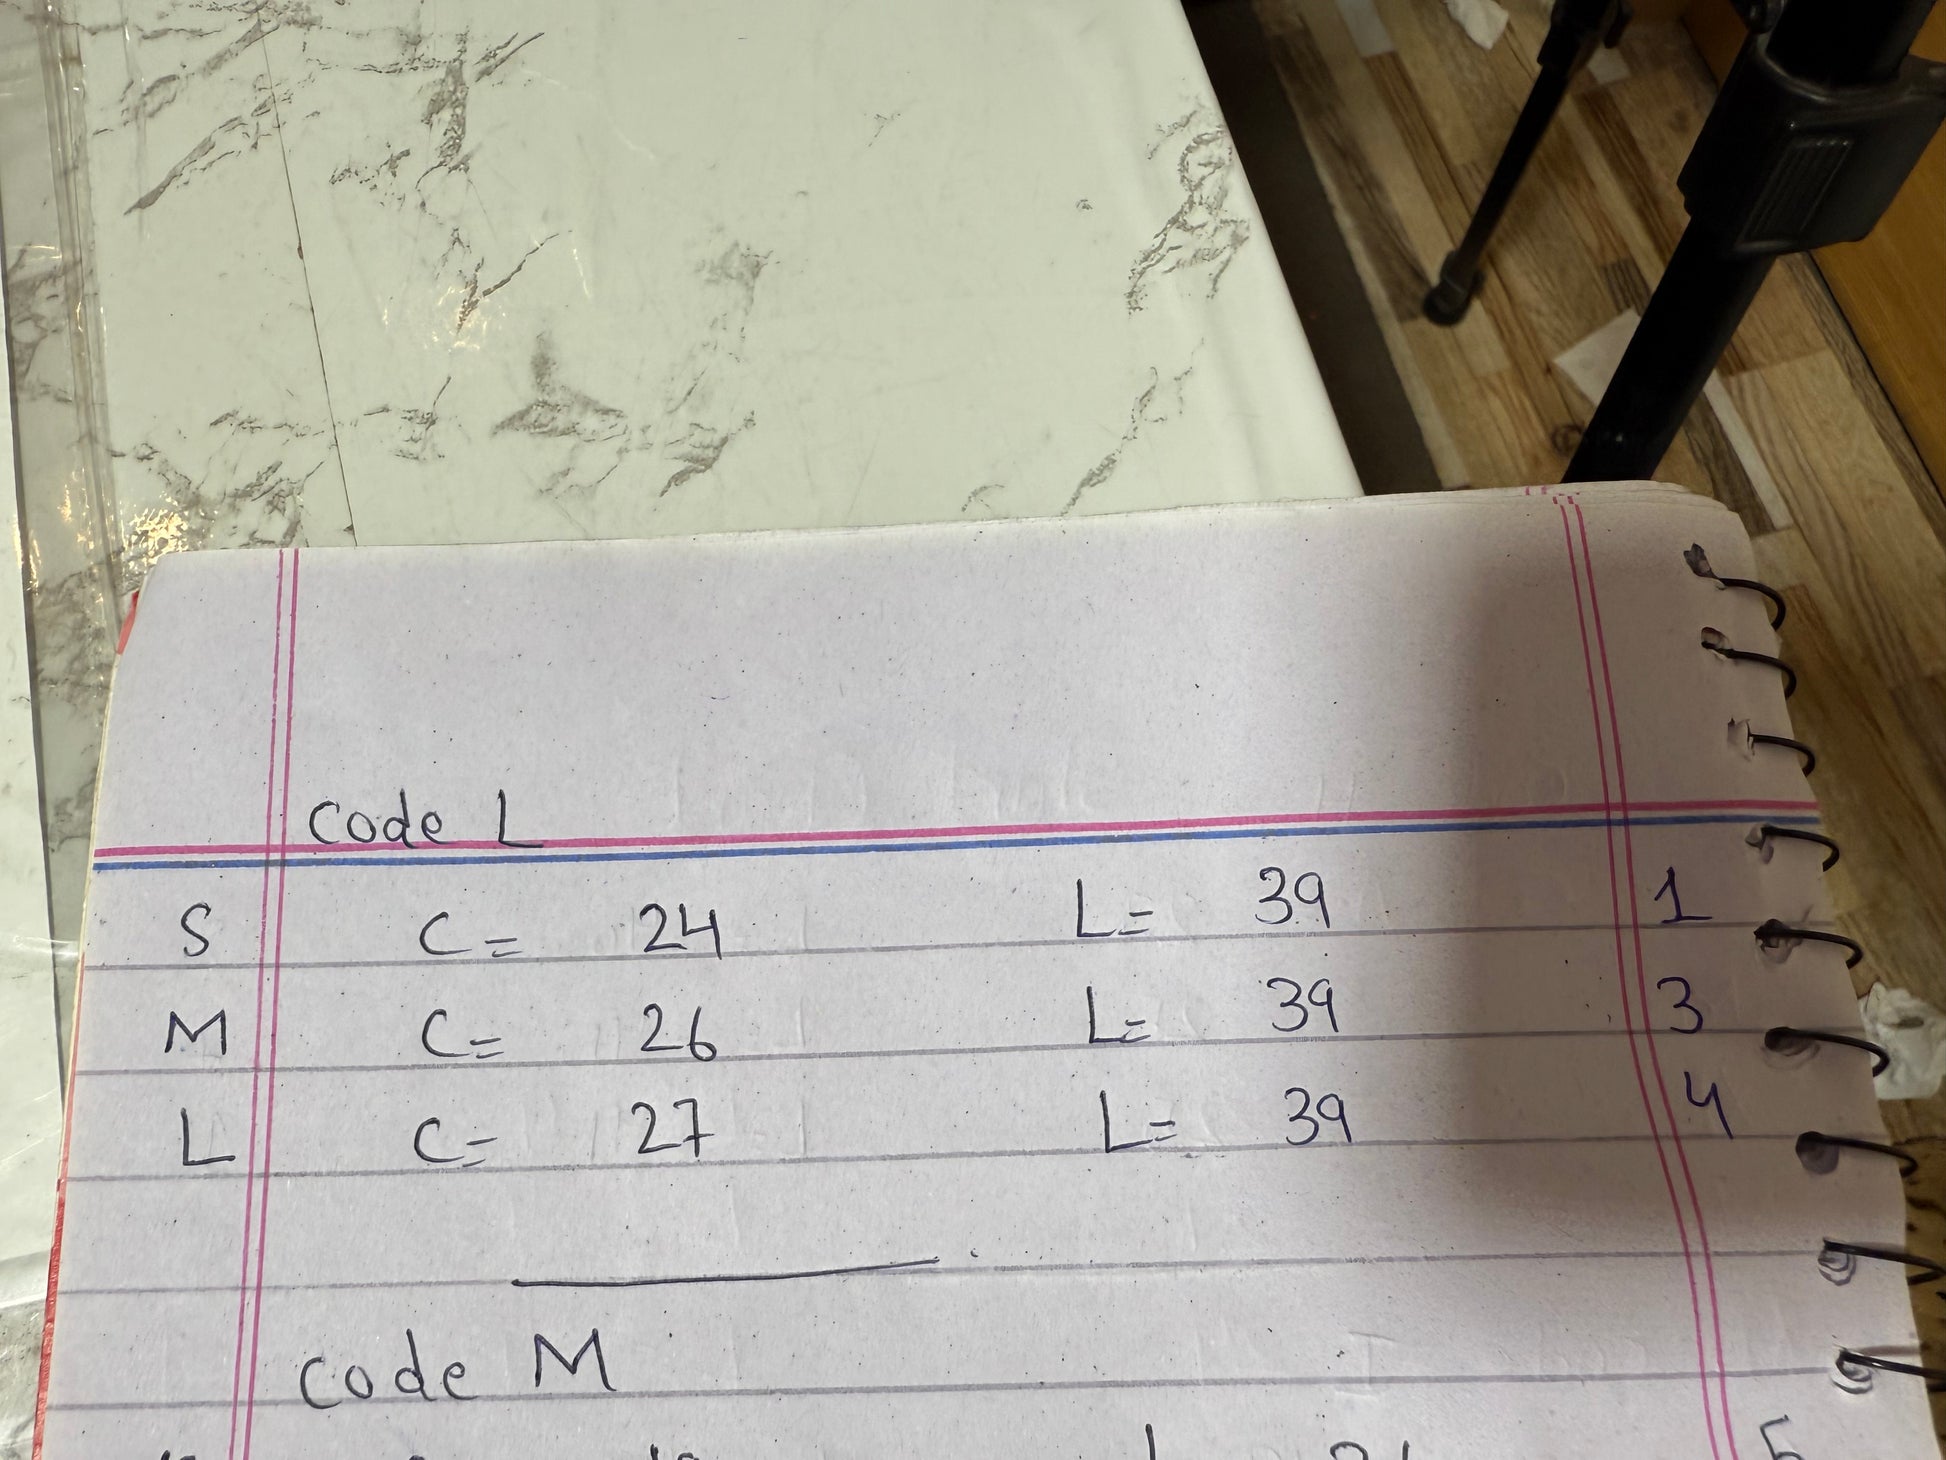 code L
S C= 24 L= 39 1
M C= 26 L= 39 3
L C= 27 L= 39 4
code M